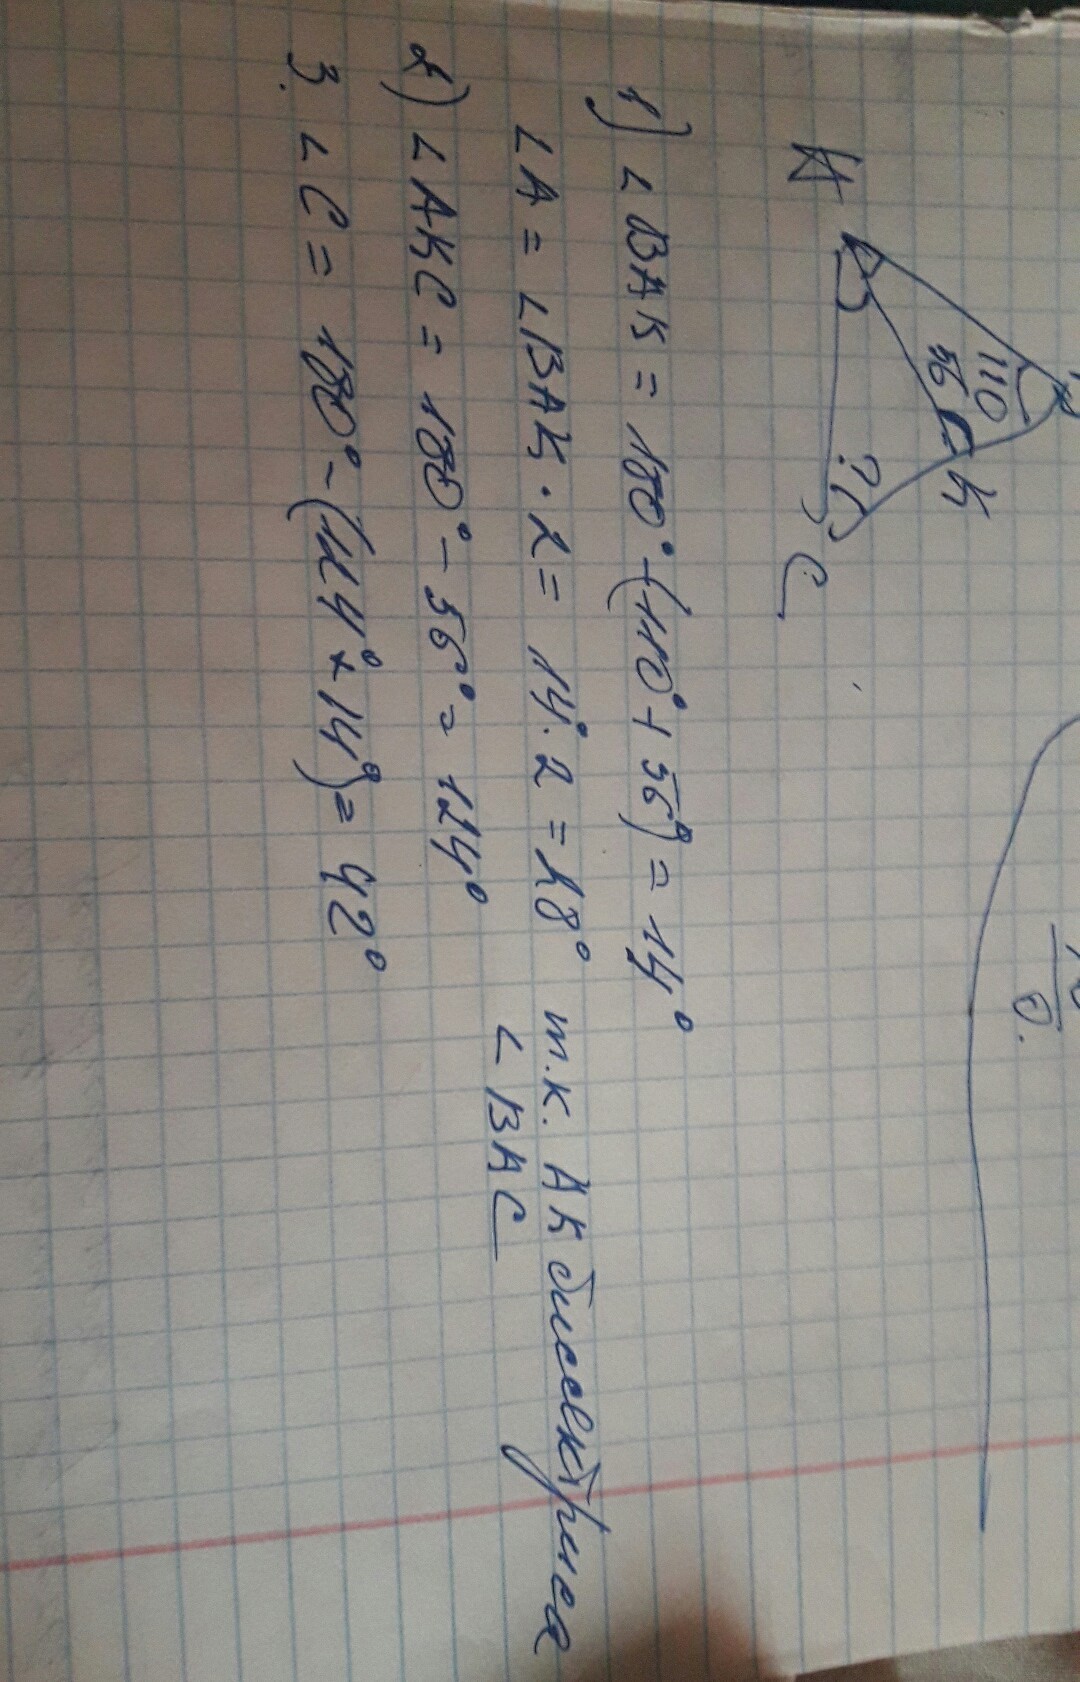 A
110
56
K
?
C
1) ∠BAK = 180° - (110° + 56°) = 14°
∠A = ∠BAK · 2 = 14° · 2 = 28° т.к. AK биссектриса
∠BAC
2) ∠AKC = 180° - 56° = 124°
3. ∠C = 180° - (124° + 14°) = 42°